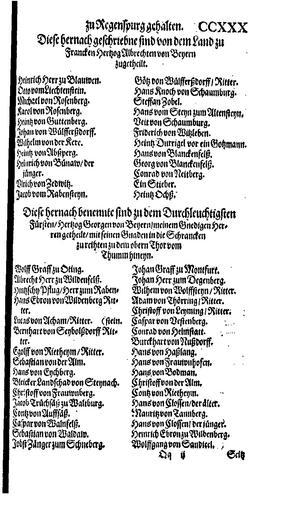 zu Regenspurg gehalten. CCXXX
Diese hernach geschriebne sind von dem Land zu
Francken Hertzog Albrechten von Beyern
zugetheilt.
Heinrich Herr zu Blauwen.
Otto vom Liechtenstein.
Michael von Rosenberg.
Karol von Rosenberg.
Heintz von Guttenberg.
Johan von Wülfferßdorff.
Wilhelm von der Kere.
Heintz von Absperg.
Heinrich von Bünaw/ der
jünger.
Vlrich von Zedwitz.
Jacob vom Rabensteyn.
Götz von Wülfferßdorff/ Ritter.
Hans Knoch von Schaumburg.
Steffan Zobel.
Hans vom Steyn zum Altensteyn.
Veit von Schaumburg.
Friderich von Witzleben.
Heintz Durrigel vor ein Gohmann.
Hans von Blanckenfelß.
Georg von Blanckenfelß.
Conrad von Neitberg.
Ein Stieber.
Heintz Ochß.
Diese hernach benennte sind zu dem Durchleuchtigsten
Fürsten/ Hertzog Georgen von Beyern/ meinem Gnedigen Her-
ren getheilt/ mit seinen Gnaden in die Schrancken
zu reihten zu dem obern Thor vom
Thum hineyn.
Wolff Graff zu Oting.
Albrecht Herr zu Wildenfelß.
Hintzschy Pflug/ Herr zum Raben-
Hans Ebron von Wildenberg Rit-
ter. (stein.
Lucas von Aicham/ Ritter.
Bernhart von Seyboltzdorff Rit-
ter.
Egloff von Rietheym/ Ritter.
Sebastian von der Alm.
Hans von Eychberg.
Bleicker Landschad von Steynach.
Christoff von Frauwnberg.
Jacob Trüchsäß zu Waltburg.
Contz von Auffsäß.
Caspar von Wainfelß.
Sebastian von Waldaw.
Jobst Zänger zum Schneberg.
Johan Graff zu Montfurt.
Johan Herr zum Degenberg.
Wilhelm von Wolffsteyn/ Ritter.
Adam von Thörring/ Ritter.
Christoff von Leyming/ Ritter.
Caspar von Vestenberg.
Conrad von Helmstatt.
Burckhart von Nußdorff.
Hans von Haßlang.
Hans von Frauwnhofen.
Hans von Bodman.
Christoff von der Alm.
Contz von Rietheym.
Hans von Clossen/ der älter.
Mauritz von Tannberg.
Hans von Clossen/ der jünger.
Henrich Ebron zu Wildenberg.
Wolffgang von Sandicel.
Qq ij Seitz